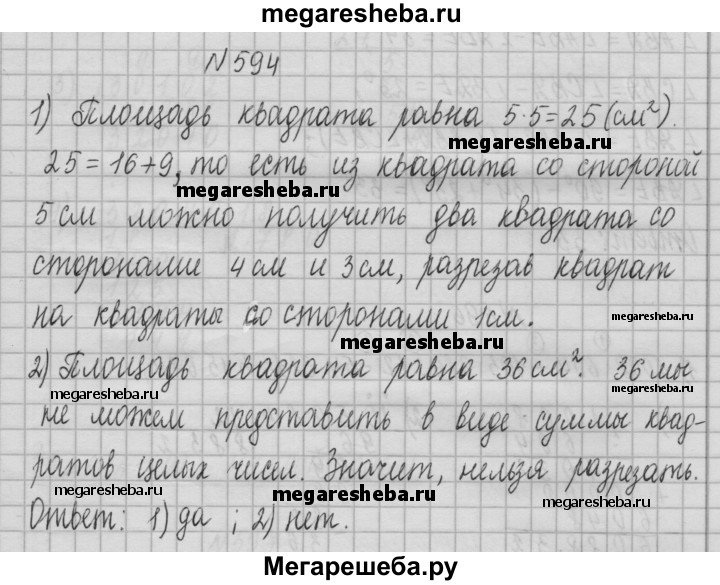 megaresheba.ru
N594
1) Площадь квадрата равна 5·5=25(см²).
megaresheba.ru
25=16+9, то есть из квадрата со стороной
megaresheba.ru
5 см можно получить два квадрата со
сторонами 4 см и 3 см, разрезав квадрат
на квадраты со сторонами 1 см.
megaresheba.ru
megaresheba.ru
2) Площадь квадрата равна 36 см². 36 мы
megaresheba.ru
megaresheba.ru
не можем представить в виде суммы квад-
ратов целых чисел. Значит, нельзя разрезать.
megaresheba.ru
megaresheba.ru
megaresheba.ru
Ответ: 1) да ; 2) нет.
Мегарешеба.ру